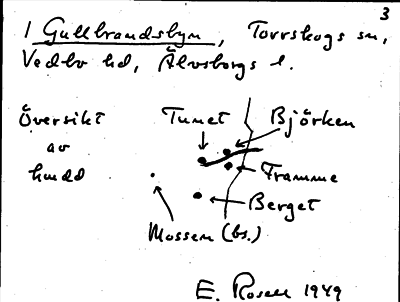 3
1 Gullbrandsbyn, Torrskogs sn,
Vedbo hd, Älvsborgs l.
Översikt
av
Tunet
Björken
Framme
Berget
Mossen (bs.)
E. Rosell 1949